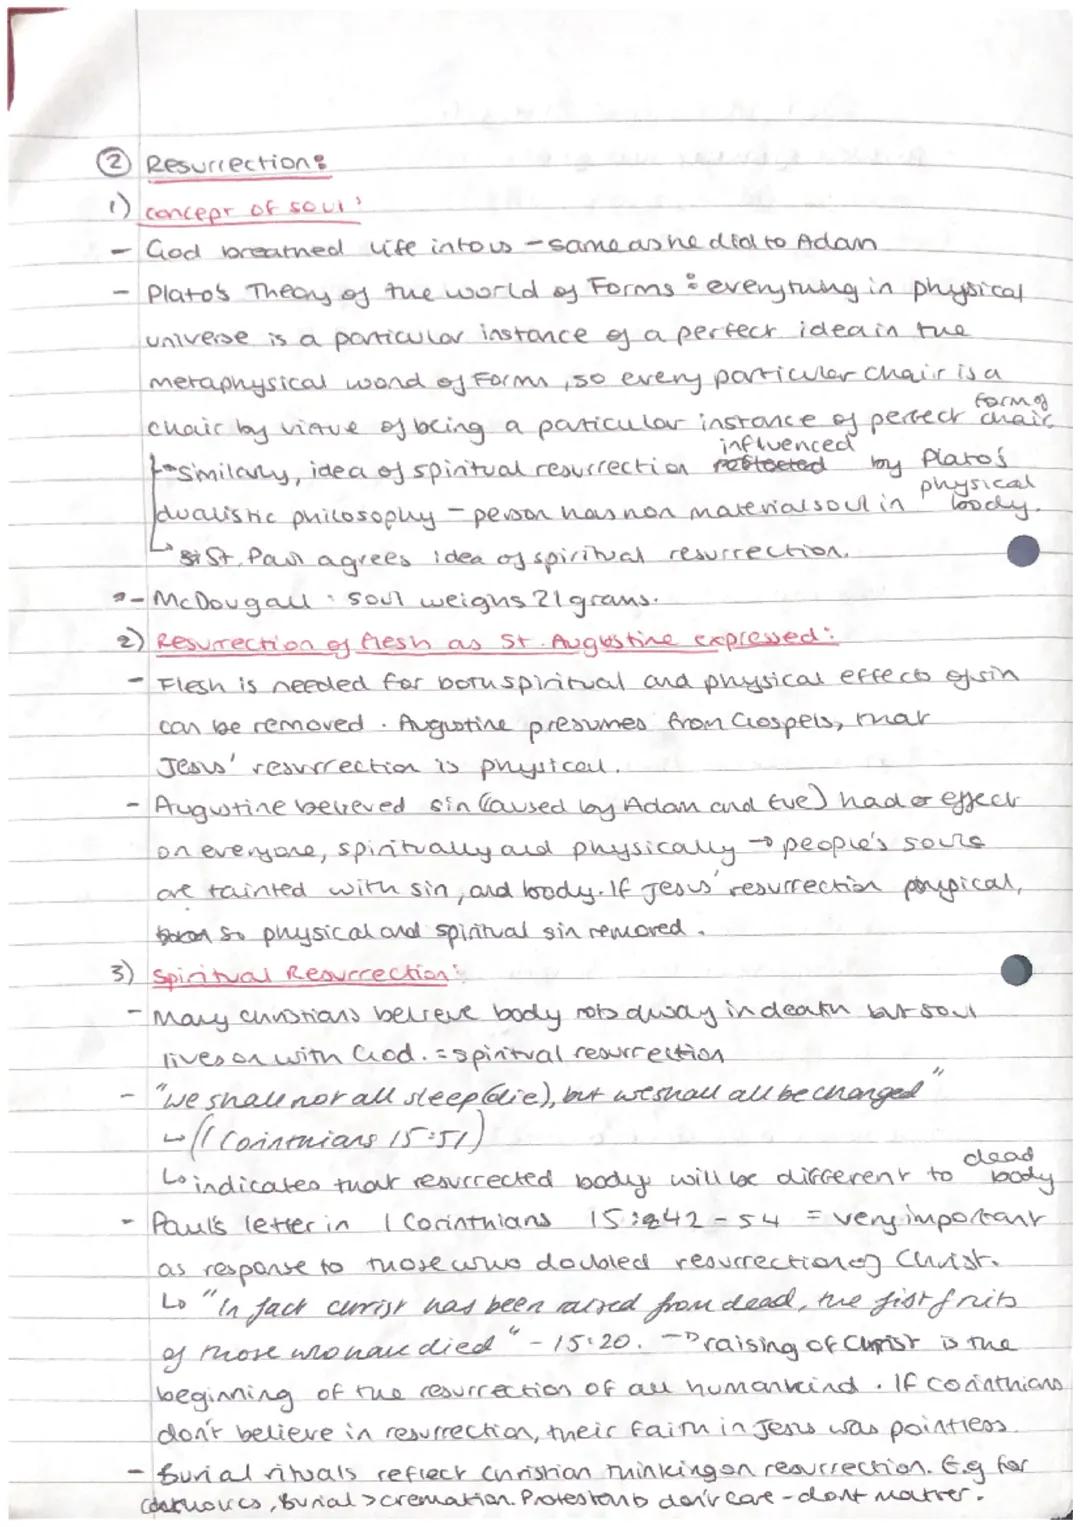 ② Resurrection:
1) concept of soul:
- God breathed life into us - same as he did to Adam
- Plato's Theory of the world of Forms: everything in physical
universe is a particular instance of a perfect idea in the
metaphysical world of Forms, so every particular chair is a
form of
chair by virtue of being a particular instance of perfect chair
influenced
↳ Similarly, idea of spiritual resurrection reflected by Plato's
physical
dualistic philosophy - person has non material soul in body.
↳ St. Paul agrees idea of spiritual resurrection.
- McDougall: soul weighs 21 grams.
2) Resurrection of flesh as St. Augustine expressed:
- Flesh is needed for both spiritual and physical effects of sin
can be removed. Augustine presumes from Gospels, that
Jesus' resurrection is physical.
- Augustine believed sin (caused by Adam and Eve) had effect
on everyone, spiritually and physically → people's souls
are tainted with sin, and body. If Jesus' resurrection physical,
so physical and spiritual sin removed.
3) Spiritual Resurrection:
- Many Christians believe body rots away in death but soul
lives on with God. = spiritual resurrection
- "We shall not all sleep (die), but we shall all be changed"
↳ (1 Corinthians 15:51)
dead
↳ indicates that resurrected body will be different to body
- Paul's letter in 1 Corinthians 15:42-54 = very important
as response to those who doubted resurrection of Christ.
↳ "In fact Christ has been raised from dead, the fist fruits
of those who have died" - 15:20. → raising of Christ is the
beginning of the resurrection of all humankind. If Corinthians
don't believe in resurrection, their faith in Jesus was pointless.
- Burial rituals reflect Christian thinking on resurrection. E.g for
Catholics, Burial > cremation. Protestants don't care - dont matter.